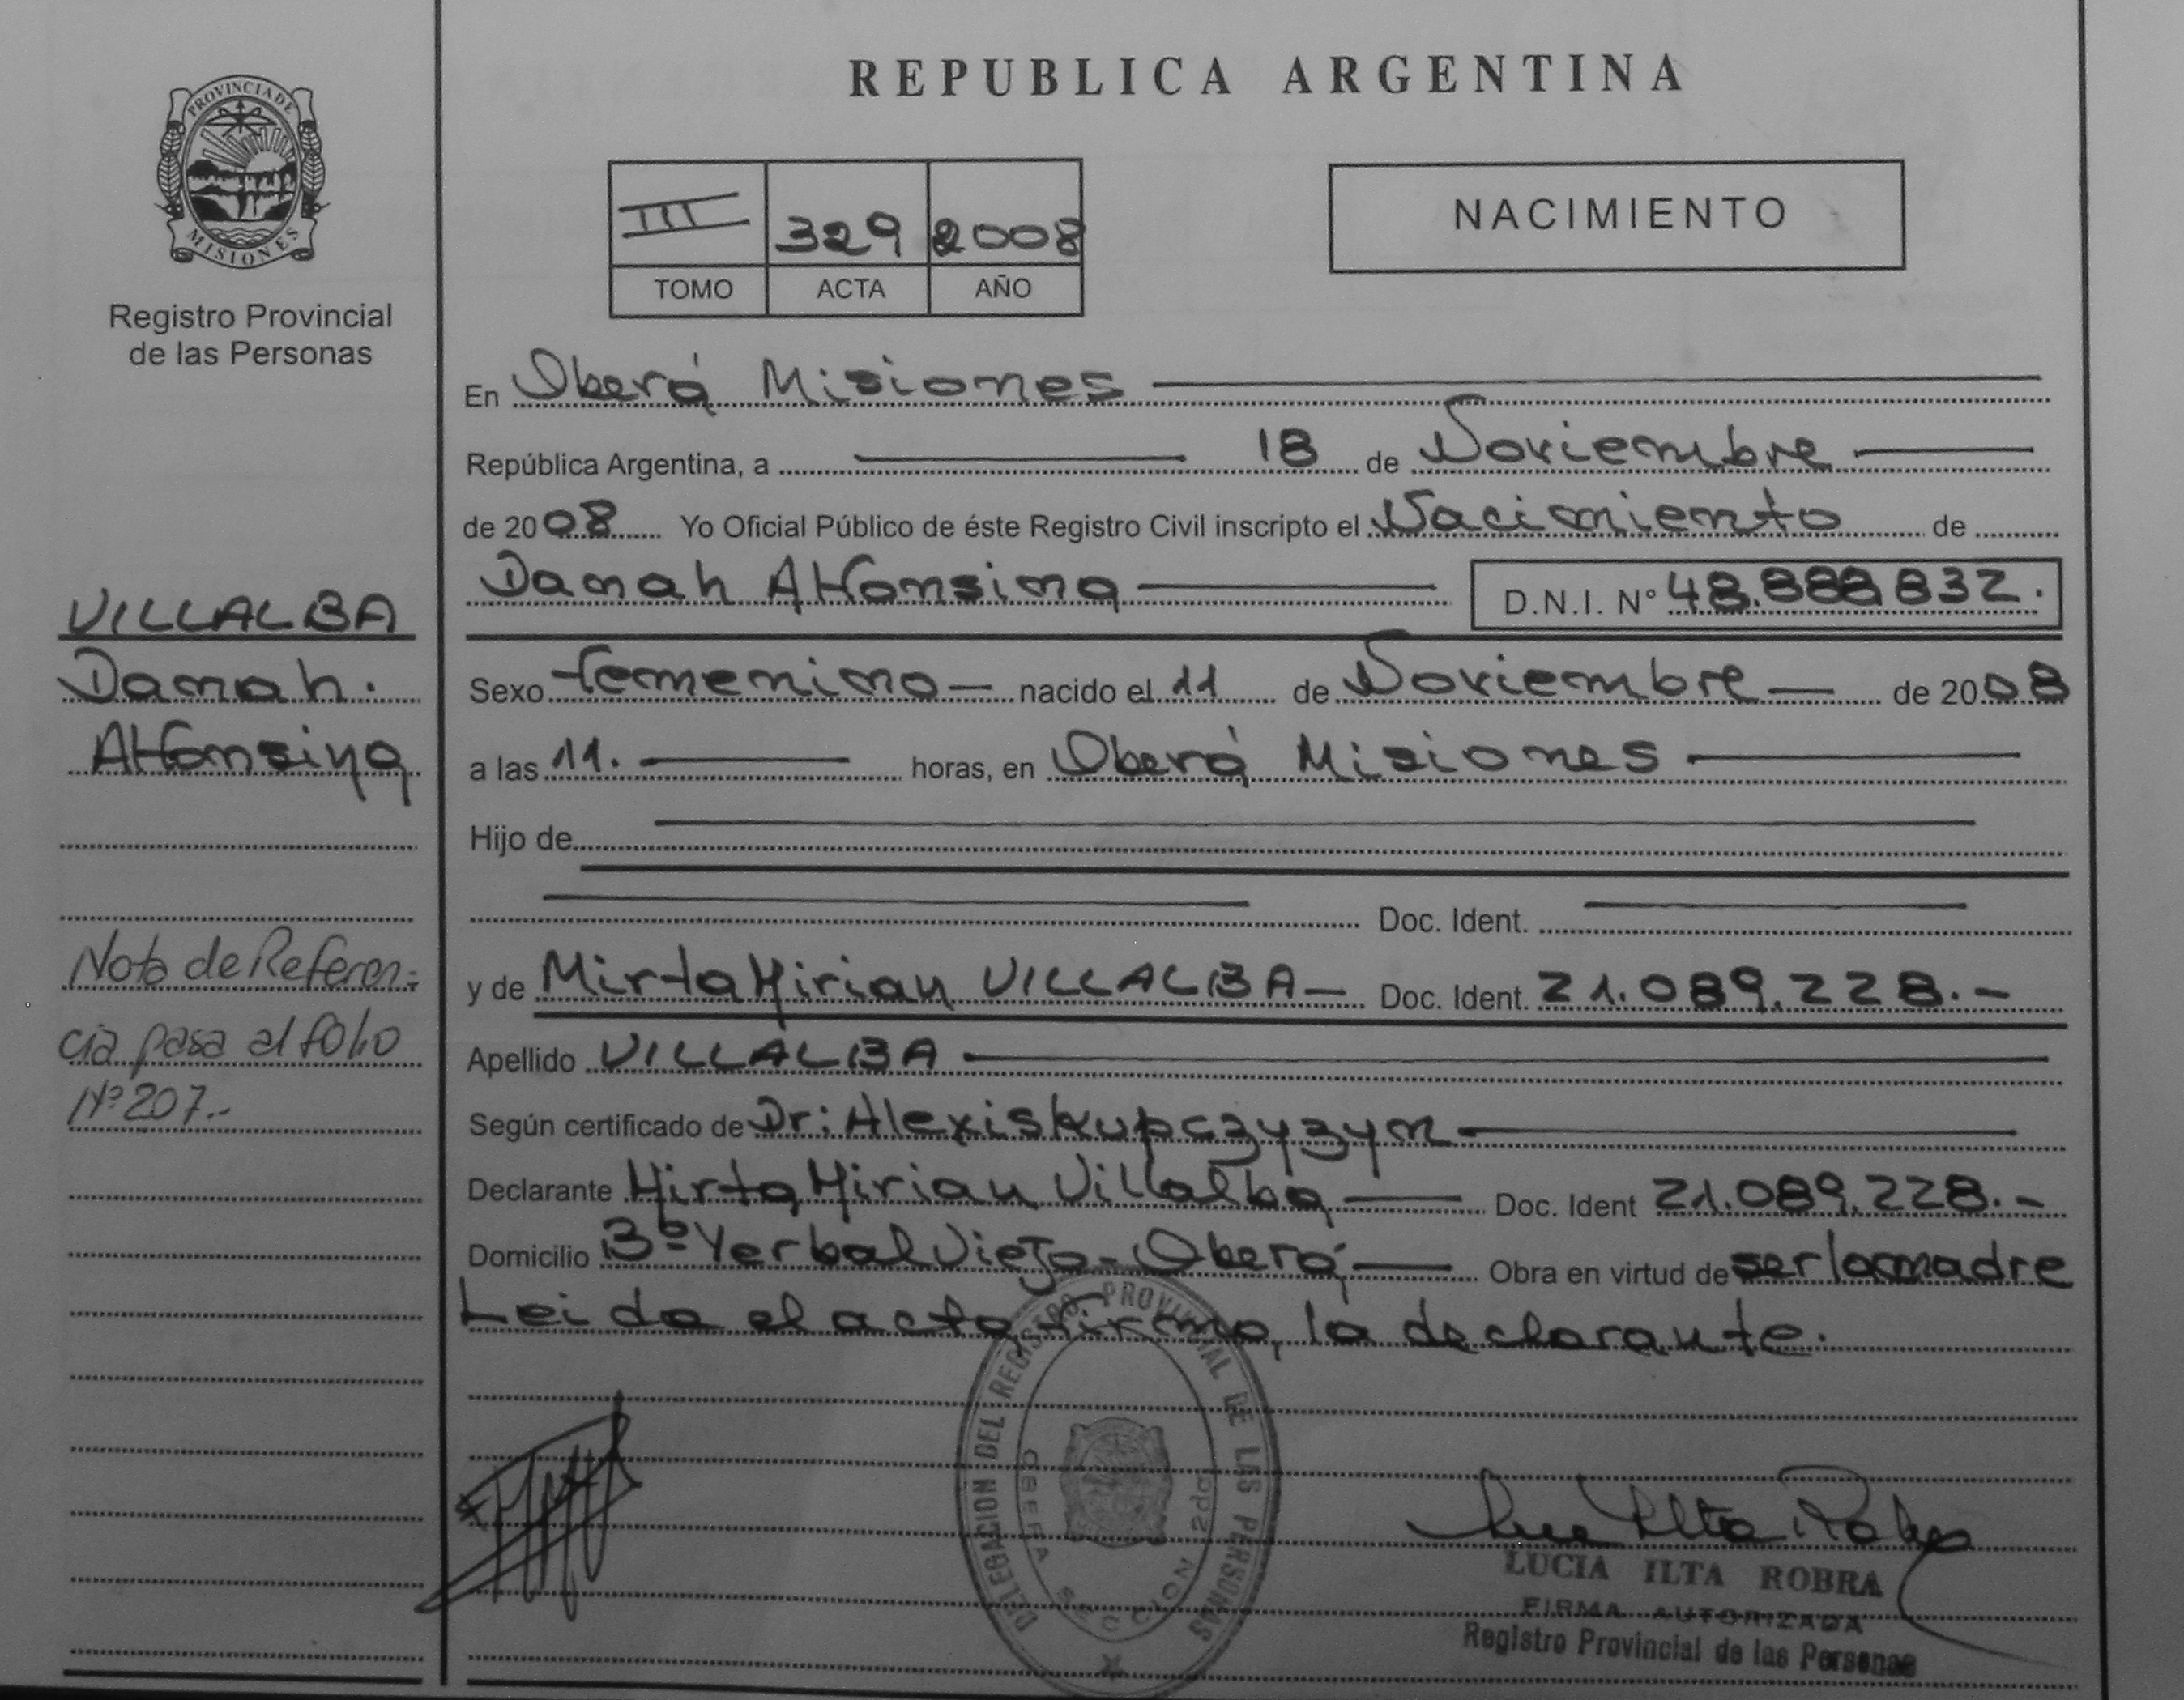 PROVINCIA DE
MISIONES
Registro Provincial
de las Personas
VILLALBA
Danah.
Alfonsina
Nota de Referen-
cia pasa al folio
Nº 207.-
REPUBLICA ARGENTINA
III 329 2008
TOMO ACTA AÑO
NACIMIENTO
En Oberá Misiones
República Argentina, a 18 de Noviembre
de 2008 Yo Oficial Público de éste Registro Civil inscripto el Nacimiento de
Danah Alfonsina D.N.I. Nº 48.888832.
Sexo femenino nacido el 11 de Noviembre de 2008
a las 11. horas, en Oberá Misiones
Hijo de
Doc. Ident.
y de Mirta Mirian VILLALBA Doc. Ident. 21.089.228.-
Apellido VILLALBA
Según certificado de Dr: Alexis Kupczyzyn
Declarante Mirta Mirian Villalba Doc. Ident 21.089.228.-
Domicilio Bº Yerbal Viejo - Oberá Obra en virtud de ser la madre
Leida el acta, firma, la declarante.
DELEGACION DEL REGISTRO PROVINCIAL DE LAS PERSONAS
OBERA SECCION 2da
LUCIA ILTA ROBRA
FIRMA AUTORIZADA
Registro Provincial de las Personas